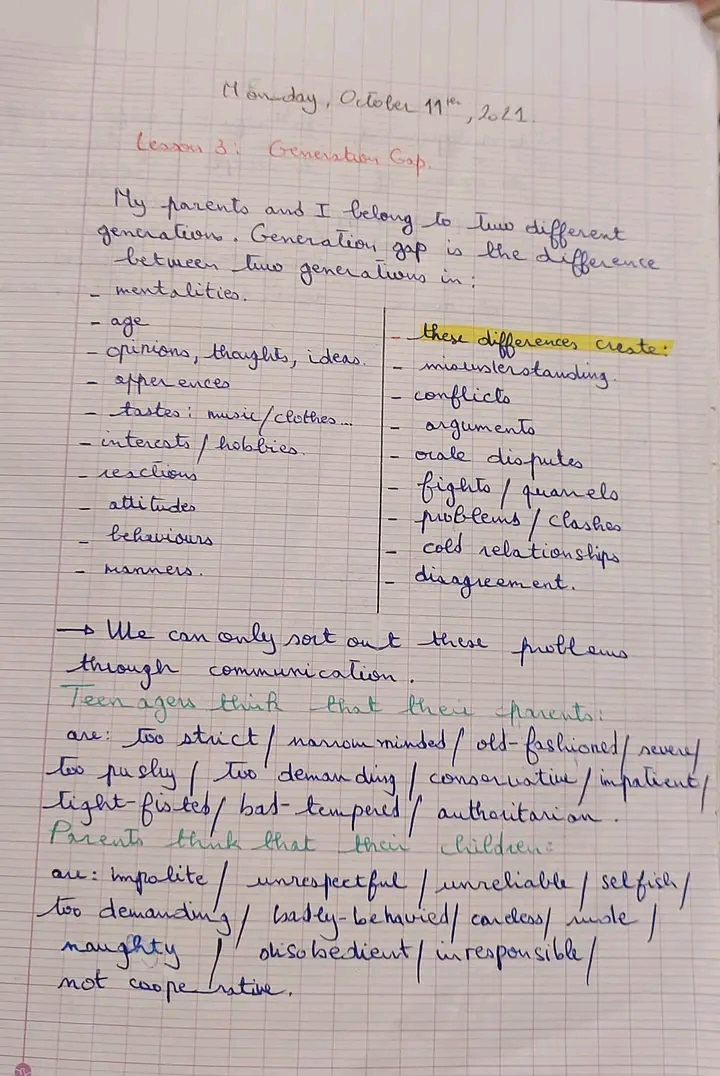 Monday, October 11th, 2021.
Lesson 3: Generation Gap.
My parents and I belong to two different
generations. Generation gap is the difference
between two generations in:
- mentalities.
- age
- opinions, thoughts, ideas.
- apperences
- tastes: music/clothes...
- interests / hobbies.
- reactions
- attitudes
- behaviours
- manners.
- these differences create:
- misunderstanding.
- conflicts
- arguments
- orale disputes
- fights / quarrels
- problems / clashes
- cold relationships
- disagreement.
→ We can only sort out these problems
through communication.
Teenagers think that their parents:
are: too strict / narrow minded / old-fashioned / severe/
too pushy / too demanding / conservative / impatient/
tight-fisted / bad-tempered / authoritarian.
Parents think that their children:
are: impolite / unrespectful / unreliable / selfish/
too demanding / badly-behavied / careless / rude /
naughty / disobedient / irresponsible /
not cooperative.